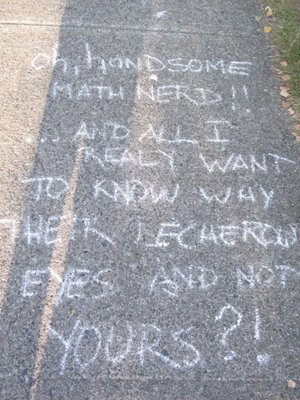 oh, handsome
MATH NERD!!
...AND ALL I
REALY WANT
TO KNOW WHY
THEIR LECHEROW
EYES AND NOT
YOURS?!